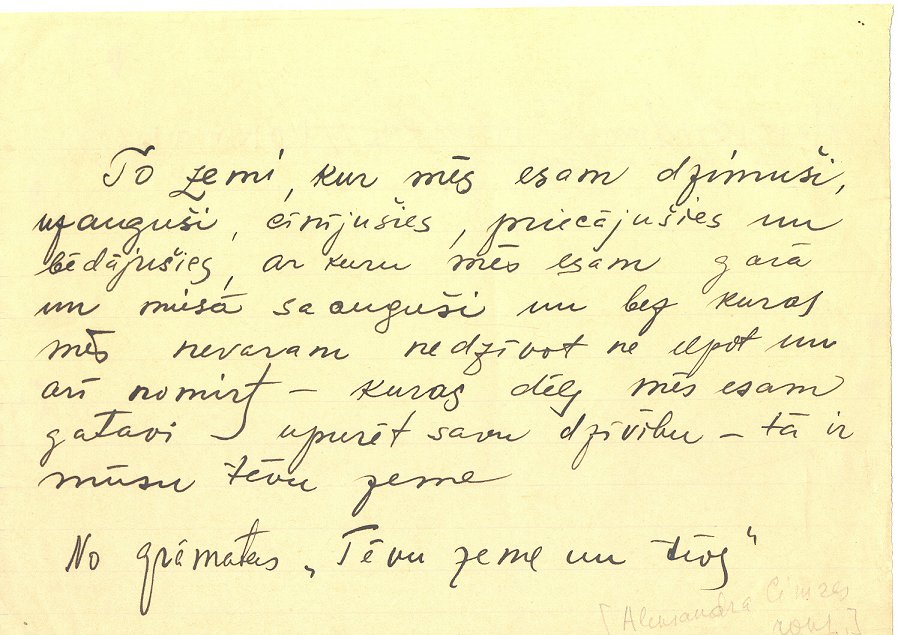 To zemi, kur mēs esam dzimuši,
uzauguši, cīnījušies, priecājušies un
bēdājušies, ar kuru mēs esam garā
un miesā saauguši un bez kuras
mēs nevaram ne dzīvot ne elpot un
arī nomirt – kuras dēļ mēs esam
gatavi upurēt savu dzīvību – tā ir
mūsu tēvu zeme
No grāmatas „Tēvu zeme un tēvs"
[Aleksandra Cimzes
rokr.]